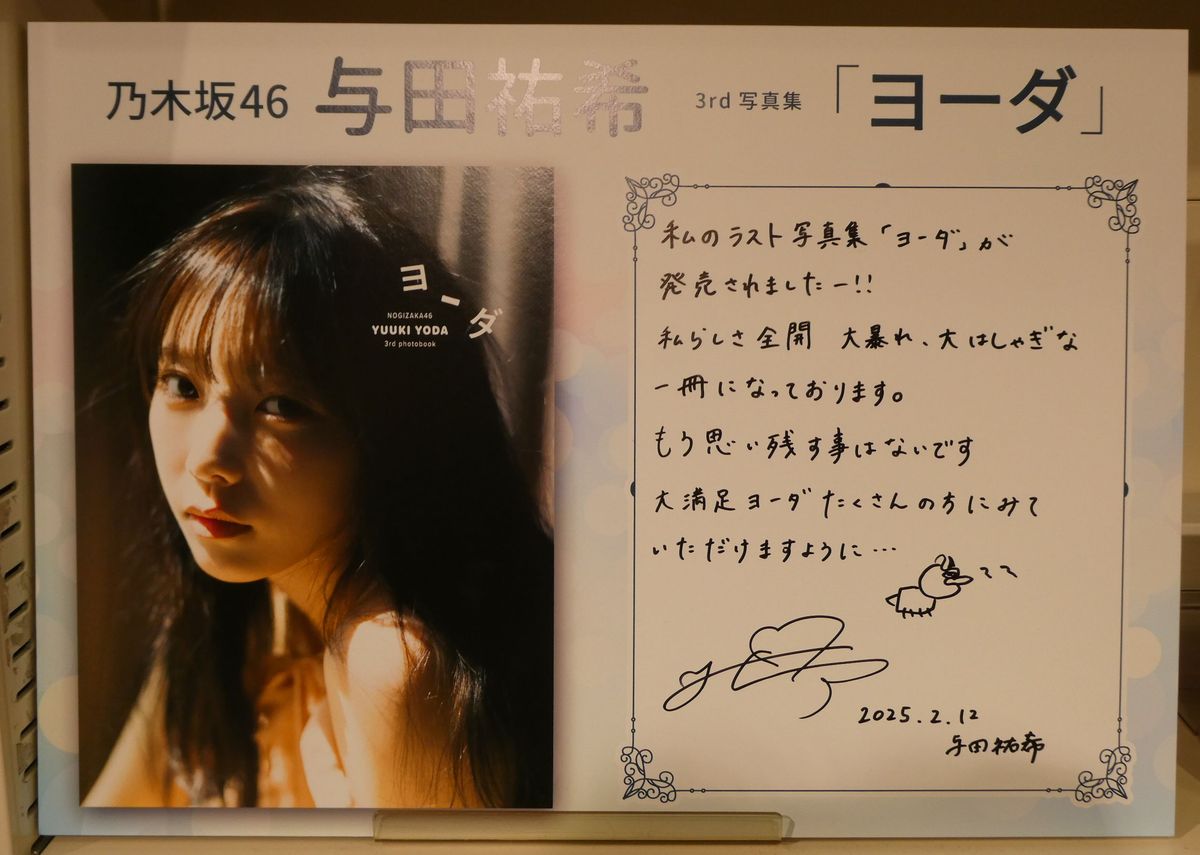 乃木坂46 与田祐希 3rd 写真集 「ヨーダ」
ヨーダ
NOGIZAKA46
YUUKI YODA
3rd photobook
私のラスト写真集「ヨーダ」が
発売されましたー!!
私らしさ全開 大暴れ、大はしゃぎな
一冊になっております。
もう思い残す事はないです
大満足ヨーダ たくさんの方にみて
いただけますように…
2025.2.12
与田祐希